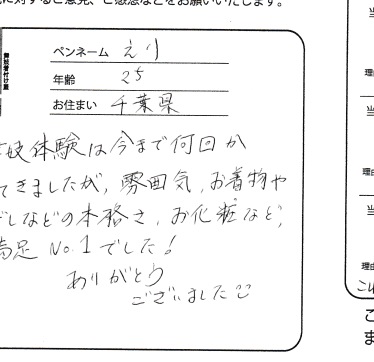 に対するご意見、ご感想などをお願いいたします。
ペンネーム えり
年齢 25
お住まい 千葉県
妓体験は今まで何回か
てきましたが、雰囲気、お着物や
しなどの本格さ、お化粧など、
満足 No.1でした!
ありがとう
ございました
当
理由
当
理由
当
理由
こ
ま